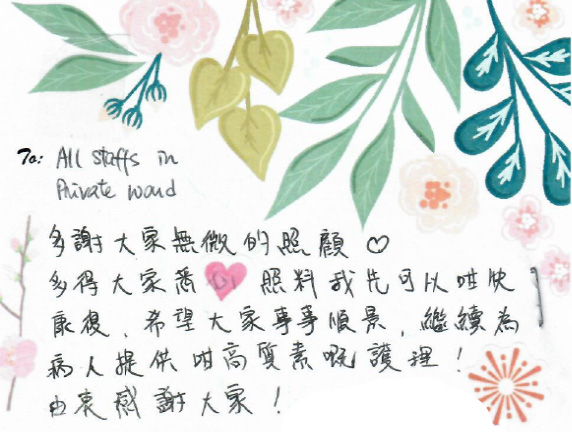 To: All staffs in
Private ward
多謝大家無微的照顧♡
多得大家悉心照料我先可以咁快
康復、希望大家事事順景,繼續為
病人提供咁高質素嘅護理!
由衷感謝大家!